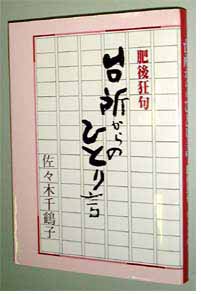 肥後狂句
台所からの
ひとり言
佐々木千鶴子